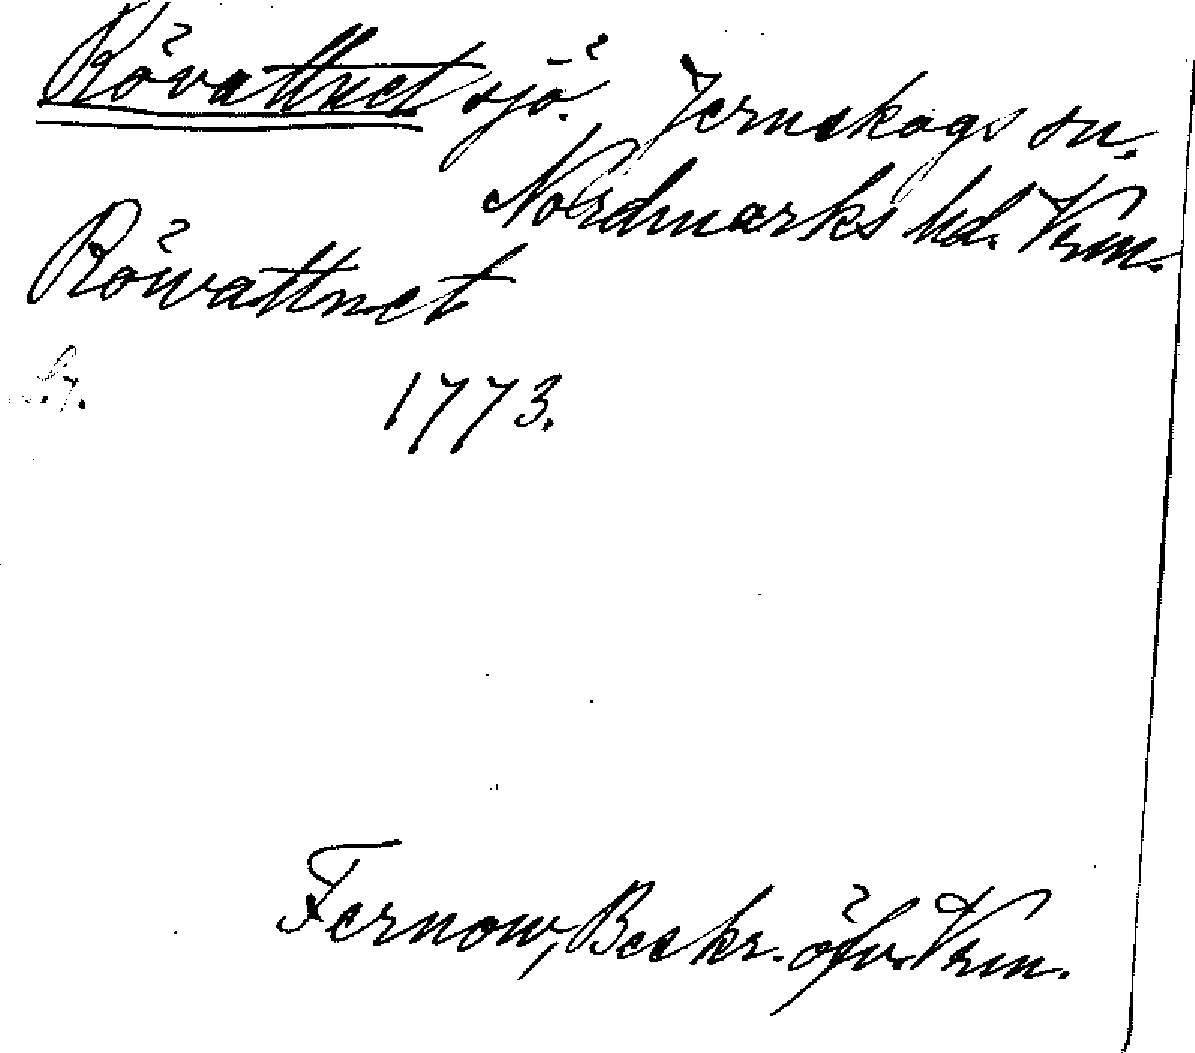 Rövattnet sjö. Jernskogs sn.
Nordmarks hd. Vrm.
Röwattnet
1773.
Fernow, Beskr. öfv. Vrm.